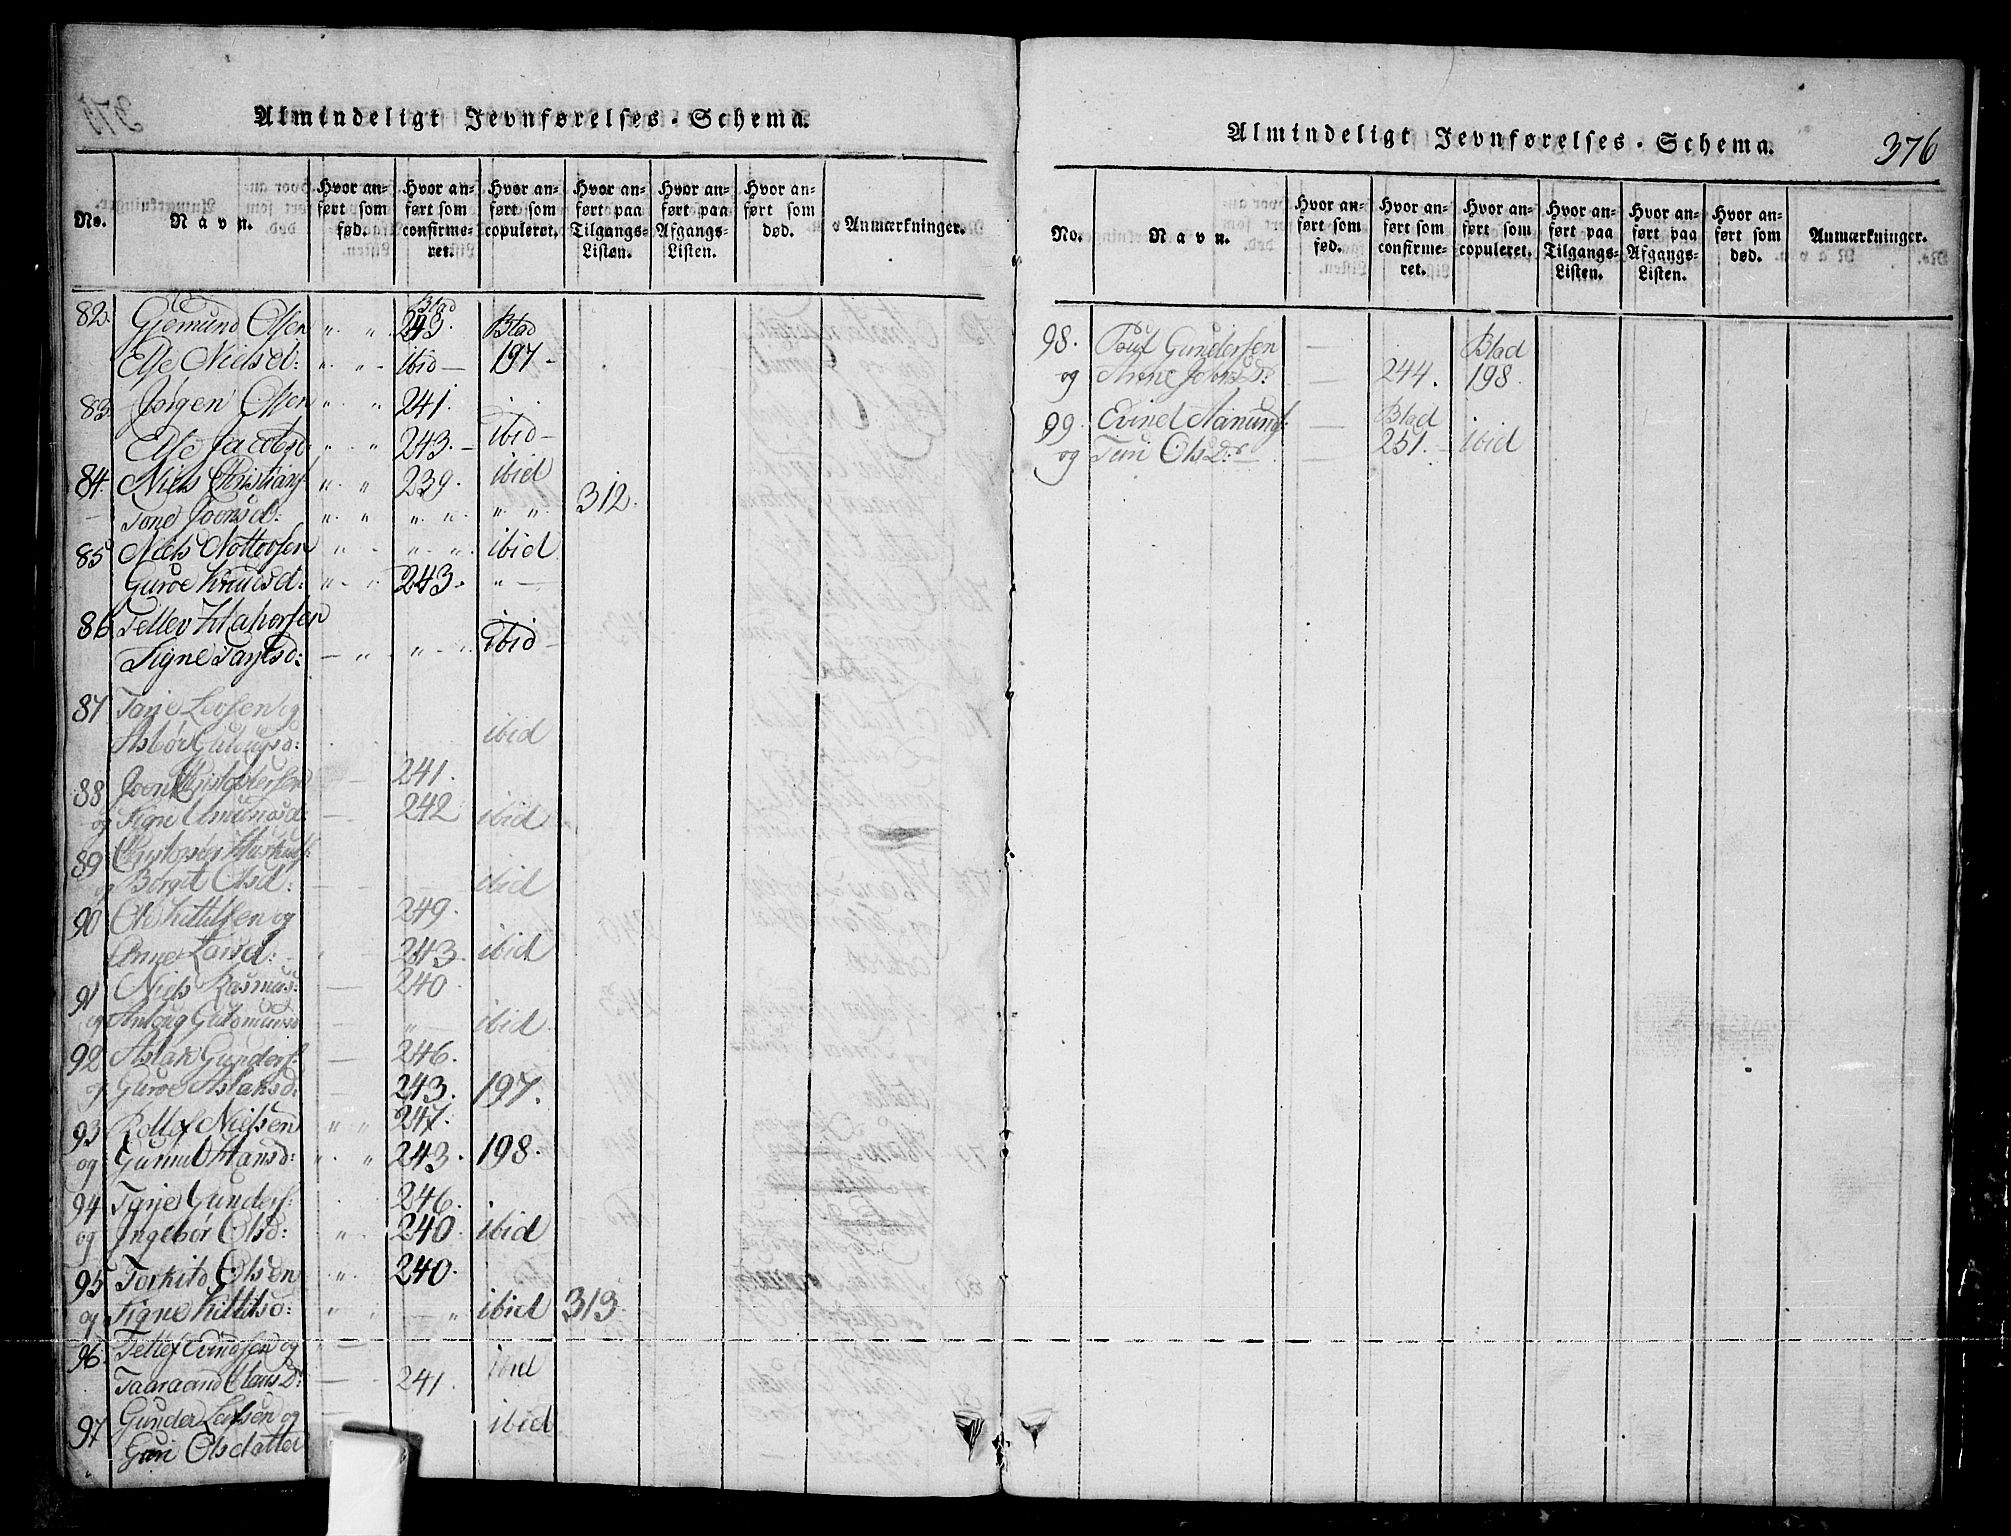 Almindeligt Jevnførelses-Schema.
No. Navn. Hvor anført som fød. Hvor anført som confirmeret. Hvor anført som copuleret. Hvor anført paa Tilgangs-Listen. Hvor anført paa Afgangs-Listen. Hvor anført som død. Anmærkninger.
82. Gjemund Olsen " " Blad 243. Blad
Else Nielsd: " " - ibid - 197 -
83. Jørgen Olsen " " 241.
Else Jacobsd: " " 243. - ibid -
84. Niels Christians " " 239. ibid
Tone Joensd: " " " " " " 312.
85 Niels Nottovsen " - " " ibid
Guroe Knudsd: " - " 243. " -
86 Tellev Halvorsen
Signe Tarjesd: - " " - " ibid -
87 Tarje Levsen og
Asbør ibid
88 Joen Christophersen - 241.
og Signe Amundsd: - 242 ibid
89
og Borget Olsd: - - ibid
90 Ole Kittilsen og 249.
Anne Larsd: - " 243 ibid
91 Niels Rasmus: - 240
og Antoug - " - ibid
92 Aslak Gunders: - 246.
og Guroe Aslaksd: - 243. 197.
93 Rollef Nielsen " " 247.
og Gunnil Hansd: " " 243. 198.
94 Tarje Gunders: 246.
og Ingebør Olsd: " 240 ibid
95 Torkild Olsen " 240.
og Signe Kittilsd: " - " ibid 313.
96. Tellef Evindsen og " -
Taaraand Claus D: - 241. ibid
97 Gunder Leifsen og - ibid
Guri Olsdatter
Almindeligt Jevnførelses-Schema. 376
No. Navn. Hvor anført som fød. Hvor anført som confirmeret. Hvor anført som copuleret. Hvor anført paa Tilgangs-Listen. Hvor anført paa Afgangs-Listen. Hvor anført som død. Anmærkninger.
98. Poul Gundersen - Blad
og Anne Joens D: - 244. 198.
99. Evind Aanunds: - Blad
og Turi Ols Dr - 251. - ibid